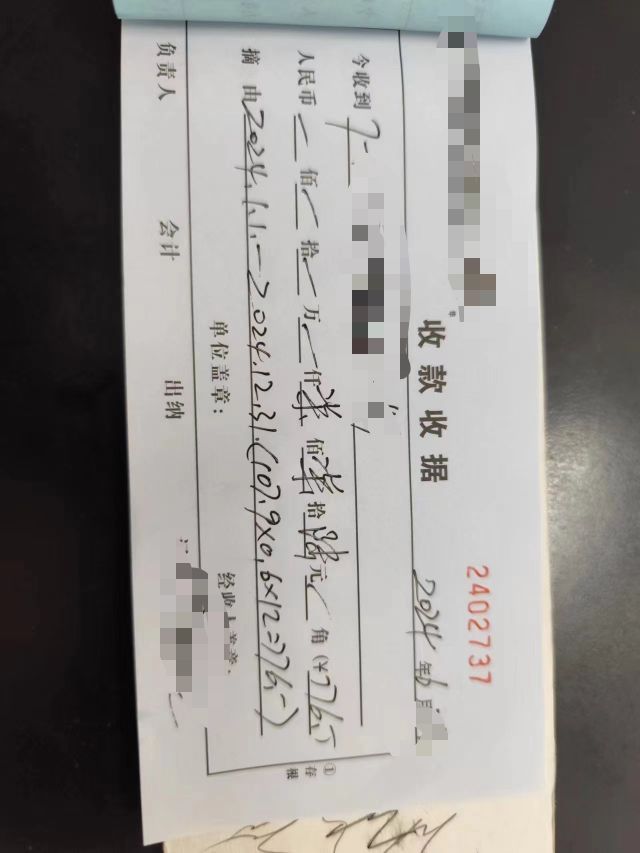 收款收据
2402737
2024年6月
今收到 7-
人民币 佰 拾 万 仟 柒 佰 柒 拾 陆 元 角 (¥776.-)
摘由 2024.1.1.-2024.12.31.(107.9×0.6×12=776.-)
单位盖章: 经收人盖章:
负责人 会计 出纳
①存根